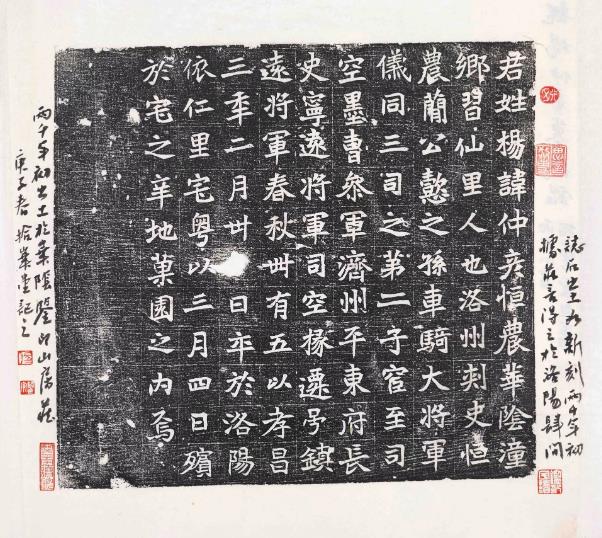 誌石出土如新刻丙午年初
據莊言得之於洛陽肆間
君姓楊諱仲彥恒農華陰潼
鄉習仙里人也洛州刾史恒
農蘭公懿之孫車騎大將軍
儀同三司之第二子宦至司
空墨曹叅軍濟州平東府長
史寧遠將軍司空掾遷号鎮
遠將軍春秋卌有五以孝昌
三年二月卅日卒於洛陽
依仁里宅粵以三月四日殯
於宅之辛地菓園之內焉
丙午年初出土於華陰鑒印山房莊
庚子春拾葉堂記之